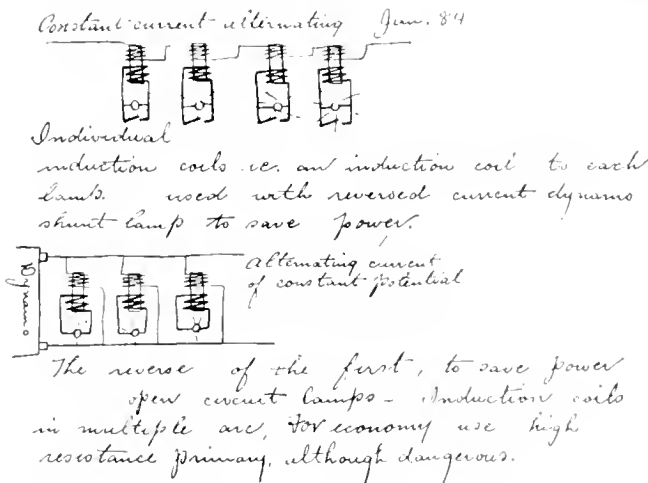 Constant current alternating Jan. 84
Individual
induction coils i.e. an induction coil to each
lamp. used with reversed current dynamo
shunt lamp to save power.
Dynamo
Alternating current
of constant potential
The reverse of the first, to save power
open circuit lamps - Induction coils
in multiple arc, For economy use high
resistance primary, although dangerous.